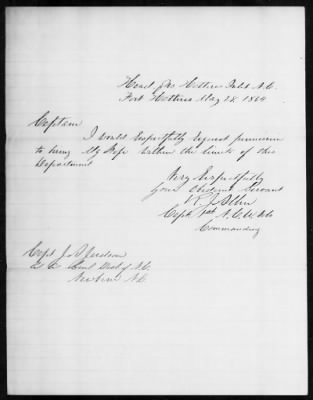 Head Qrs Hatteras Inlet N.C.
Fort Hatteras May 28 1864
Captain
I would respectfully request permission
to bring My Wife within the limits of this
Department
Very Respectfully
Your Obedient Servant
Capt 1st N.C.
Commanding
Capt J. A. Judson
Genl Dist of N.C.
N.C.